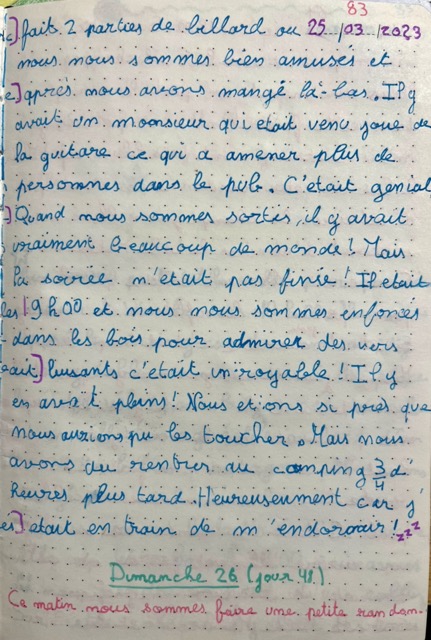 83
fait 2 parties de billard ou 25/03/2023
nous nous sommes bien amusés et
après nous avons mangé là-bas. Il y
avait un monsieur qui etait venu joue de
la guitare ce qui a amener plus de
personnes dans le pub. C'etait genial
Quand nous sommes sortis, il y avait
vraiment beaucoup de monde! Mais
la soirée n'était pas finie! Il etait
19h00 et nous nous sommes enfoncés
dans les bois pour admirer des vers
luisants c'était incroyable! Il y
en avait pleins! Nous etions si près que
nous aurions pu les toucher. Mais nous
avons du rentrer au camping 3/4 d'
heures plus tard. Heureusement car j'
etait en train de m'endormir! zzz
Dimanche 26 (jour 48)
Ce matin nous sommes faire une petite randon-